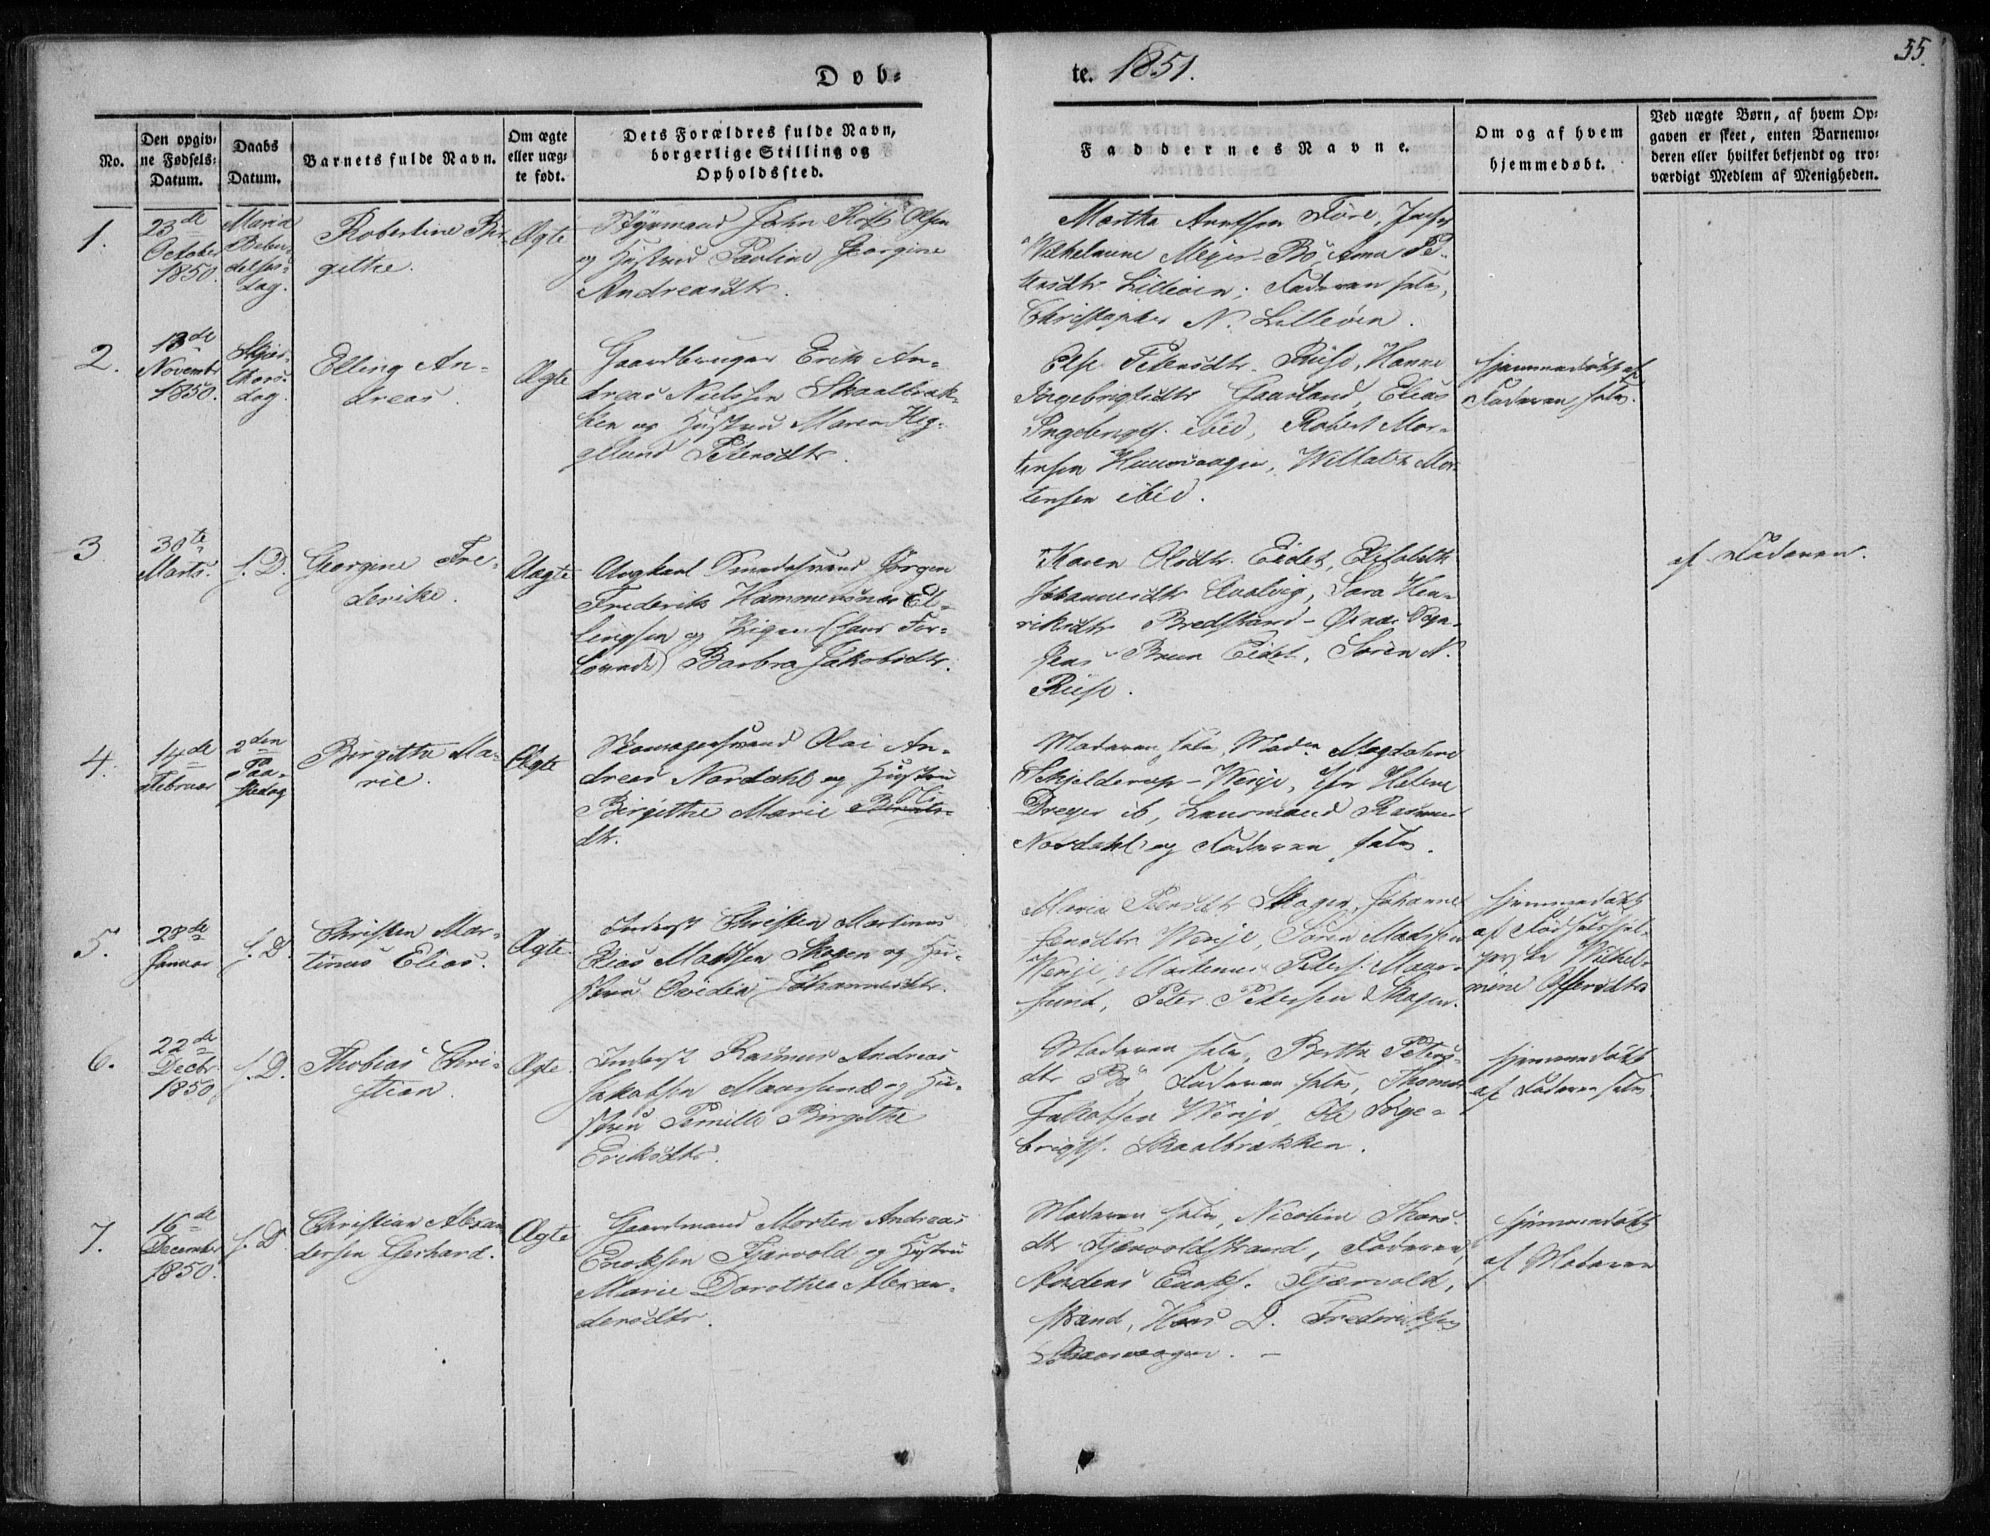 Døb-
te. 1851.
55.
No.
Den opgiv-
ne Fødsels-
Datum.
Daabs
Datum.
Barnets fulde Navn.
Om ægte
eller uæg-
te født.
Dets Forældres fulde Navn,
borgerlige Stilling og
Opholdssted.
Faddernes Navne.
Om og af hvem
hjemmedøbt.
Ved uægte Børn, af hvem Op-
gaven er skeet, enten Barnemo-
deren eller hvilket bekjendt og tro-
værdigt Medlem af Menigheden.
1.
23de
October
1850.
Maria
Bebu-
delses-
dag.
Robertine Bir-
githe.
Ægte
Styrmand John Olsen
og Hustru Pauline Georgine
Andreasdtr.
Martha Arntsen Føre, Jomfr
Wilhelmine Mejer Bö, Anna Pe-
tersdtr Lilleöen, Faderen selv,
Christopher N. Lilleöen.
2.
13de
Novembr
1850.
Skjær-
thors-
dag.
Elling An-
dreas.
Ægte
Gaardbruger Erik An-
dreas Nielsen Skaalbræk-
ken og Hustru Maren Heg-
gelund Petersdtr.
Else Petersdtr. Riise, Hanna
Ingebrigtsdtr Gaasland, Elias
Ingebrigts. ibid, Robert Mor-
tensen Hunsvaagen, Mor-
tensen ibid.
hjemmedøbt af
Faderen selv.
3
30te
Marts.
s. D.
Georgine Fre-
derike.
Uægte
Ungkarl Jørgen
Frederik El-
lingsen og Pigen (hans For-
lovede) Barbra Jakobsdtr.
Karen Olsdtr. Eidet, Elisabeth
Johannesdtr Qvalvig, Sara Hen-
riksdtr Bredstrand,
Jens Brun Eidet, Sören N.
Riise.
af Faderen.
4.
14de
Februar
2den
Paa-
skedag
Birgitha Ma-
rie.
Ægte
Olai An-
dreas Nordahl og Hustru
Birgithe Marie
dtr.
Moderen selv, Madm Magdalena
Skjelderup Werje, Jfr Helene
Dreyer ib, Lensmand Rasmus
Nordahl og Faderen selv.
5.
28de
Januar
s. D.
Christen Mar-
tinus Elias.
Ægte.
Inderst Christen Martinus
Elias Madsen Skagen og Hu-
stru Ovidia Johannesdtr.
Maria Petersdtr Skagen, Johanne
Werje, Sören Madsen
Werje, Martinus Peters. Maar-
sund, Peter Petersen Skagen.
hjemmedøbt
af Fødselshjel-
persk Wilhel-
mine Offersdtr
6.
22de
Decbr
1850
s. D.
Thobias Chri-
stian.
Ægte.
Inderst Rasmus Andreas
Jakobsen Maarsund og Hu-
stru Pernille Birgithe
Eriksdtr.
Moderen selv, Bertha Peters-
dtr Bö, Faderen selv, Thomas
Jakobsen Werje, Ole Inge-
brigts. Skaalbrækken.
hjemmedøbt
af Faderen selv.
7.
16de
December
1850.
s. D
Christian Alexan
dersen Gerhard.
Ægte
Gaardmand Morten Andreas
Enoksen Fjærvold og Hustru
Marie Dorothea Alexan-
dersdtr.
Moderen selv, Nicoline Thors
dtr Fjærvoldstrand, Faderen,
Anders Enoks. Fjærvold,
strand, Hans D. Frederiksen
hjemmedøbt
af Moderen